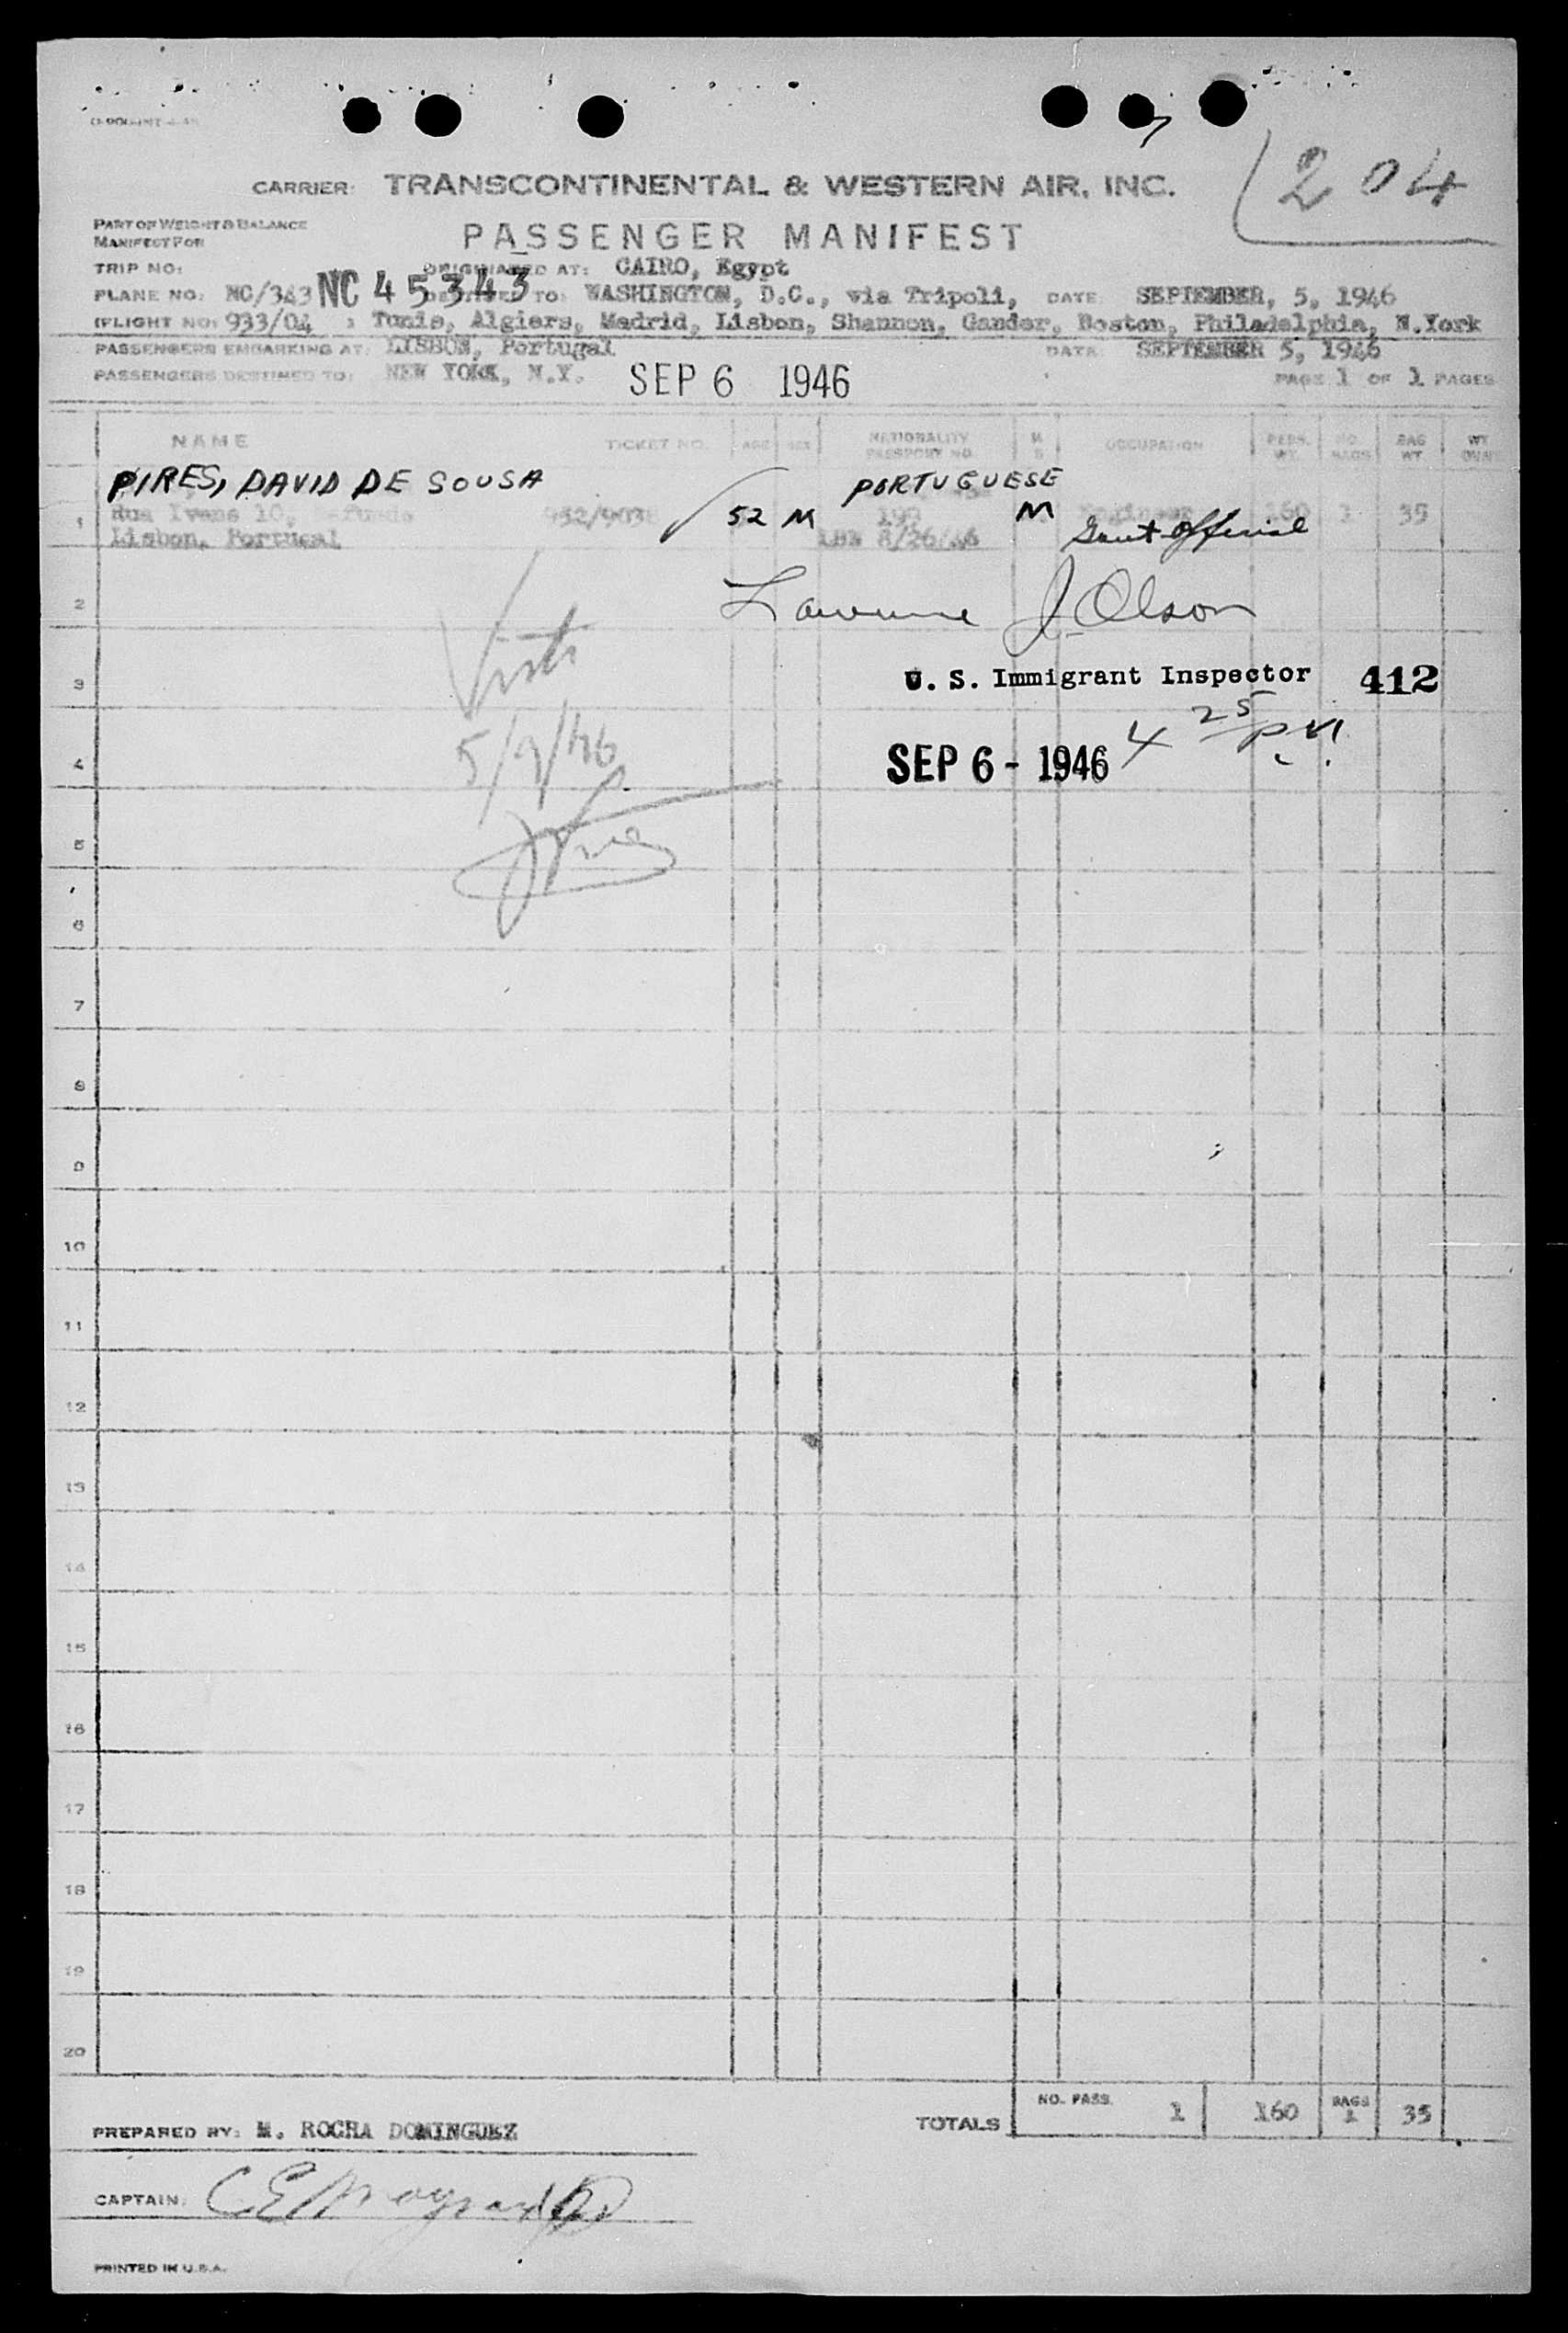 204
CARRIER: TRANSCONTINENTAL & WESTERN AIR, INC.
PART OF WEIGHT & BALANCE
MANIFEST FOR
PASSENGER MANIFEST
TRIP NO: ORIGINATED AT: CAIRO, Egypt
PLANE NO: NC/343 NC 45343 TO: WASHINGTON, D.C., via Tripoli, DATE SEPTEMBER, 5, 1946
(FLIGHT NO: 933/04 : Tunis, Algiers, Madrid, Lisbon, Shannon, Gander, Boston, Philadelphia, N.York
PASSENGERS EMBARKING AT: LISBON, Portugal DATE: SEPTEMBER 5, 1946
PASSENGERS DESTINED TO: NEW YORK, N.Y. SEP 6 1946 PAGE 1 OF 1 PAGES
NAME TICKET NO. AGE SEX NATIONALITY PASSPORT NO. M S OCCUPATION PERS. WT. NO. BAGS BAG WT WT
PIRES, DAVID DE SOUSA PORTUGUESE
1 Rua Ivens 10, 52 M 190 M Engineer 160 1 35
Lisbon, Portugal LBN 8/26/46 Govt Official
2 Lawrence J. Olson
Visto
3 U. S. Immigrant Inspector 412
5/9/46
4 SEP 6 - 1946 4 25 P.M.
5
6
7
8
9
10
11
12
13
14
15
16
17
18
19
20
TOTALS NO. PASS. 1 160 BAGS 1 35
PREPARED BY: M. ROCHA DOMINGUEZ
CAPTAIN:
PRINTED IN U.S.A.